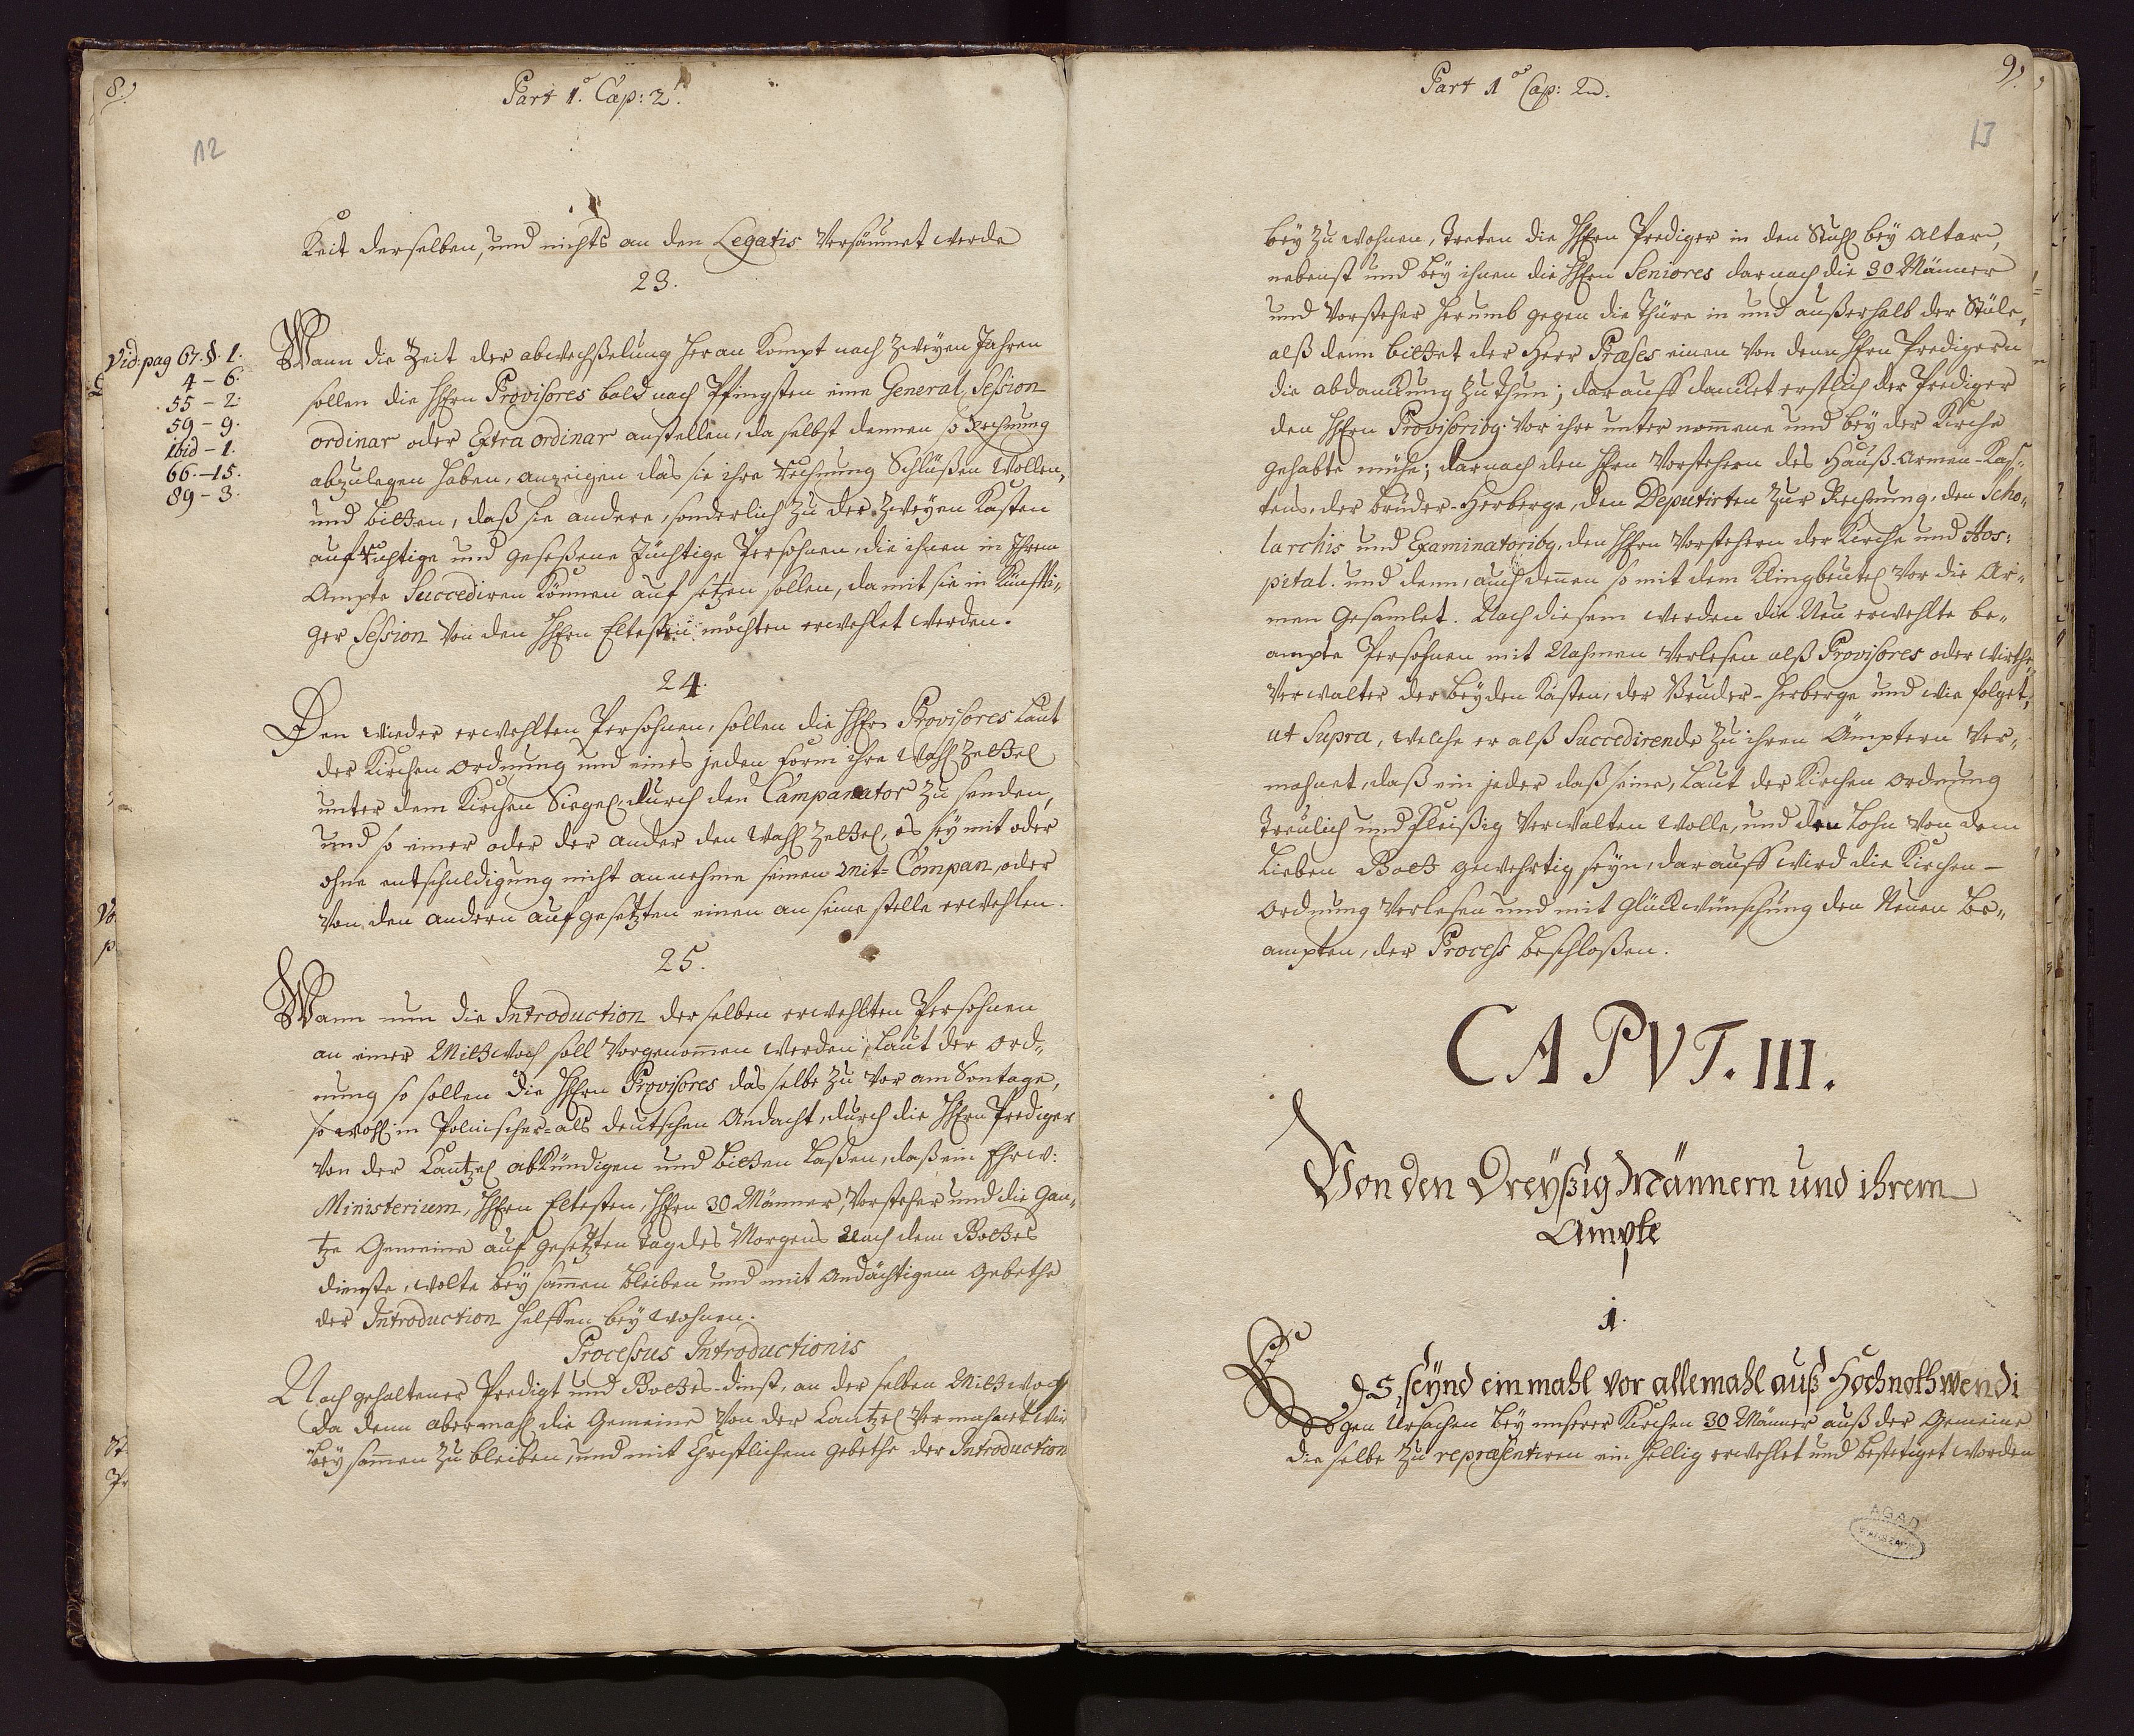 8.)
Part 1.º Cap: 2.
12
Keit derselben, und nichts an den Legatis Versäumet werde
23.
Vid: pag 67. §. 1.
4 – 6.
55 – 2.
59 – 9.
ibid – 1.
66 – 15.
89 – 3.
Wann die Zeit der abwechßelung heran kompt nach Zweyen Jahren
sollen die HHrn Provisores bald nach Pfingsten eine General Session
ordinar oder Extra ordinar anstellen, da selbst dennen so Rechnung
abzulegen haben, anzeigen das sie ihre Rechnung Schlüßen Wollen,
und bitten, daß sie andere, sonderlich zu der Zweyen Kasten
aufrichtige und geseßene züchtige Persohnen, die ihnen in Ihrem
Ampte Succediren können auf setzen sollen, damit sie in Künffti-
ger Session Von den HHrn Eltesten möchten erwehlet werden.
24.
Den wieder erwehlten Persohnen, sollen die HHrn Provisores Laut
der Kirchen ordnung und eines jeden form ihre Wahl Zettel
unter dem Kirchen Siegel, durch den Campanator zu senden,
und so einer oder der ander den Wahl Zettel, es sey mit oder
ohne entschuldigung nicht annehme seinen Mit= Compan, oder
Von den andern auf gesetzten einen an seine stelle erwehlen.
25.
Wann nun die Introduction derselben erwehlten Persohnen
an einer Mittwoch soll Vorgenom̄en werden, Laut der ord-
nung so sollen die HHrn Provisores das selbe zu Vor am Sontage,
so wohl in Polnischer= als deutschen Andacht, durch die HHrn Prediger
Von der Cantzel abkündigen und bitten Laßen, daß ein Ehrw:
Ministerium, HHrn Eltesten, HHrn 30 Männer, Vorsteher und die Gan-
tze Gemeine auf gesetzten tag des Morgens Nach dem Gottes
dienste, wolte bey sam̄en bleiben und mit andächtigem Gebethe
der Introduction helffen bey wohnen.
Processus Introductionis
Nach gehaltener Predigt und Gottes-dinst, an der selben Mittwoch
da denn abermahl die Gemeine Von der Cantzel Vermahnet wir
bey sam̄en zu bleiben, und mit Christlichem gebethe der Introduction
9.)
Part 1 Cap: 2.
13
bey zu wohnen, treten die HHrn Prediger in den Stuhl bey Altar,
nebenst und bey ihnen die HHrn Seniores darnach die 30 Männer
und Vorsteher herumb gegen die Thüre in und außerhalb der Stüle,
alß denn bittet der Herr Præses einen Von denn HHrn Predigern
die abdanckung zu thun; darauff dancket erstlich der Prediger
den HHrn Provisoribq. Vor ihre unter nom̄ene und bey der Kirche
gehabte mühe; darnach den HHrn Vorstehern des Hauß-armen-Kas-
tens, der brüder-Herberge, den Deputirten zur Rechnung, den Scho-
larchis und Examinatoribq. den HHrn Vorstehern der Kirche und Hos-
pital. und denn, auch denen so mit dem Klingbeutel Vor die Ar-
men Gesamlet. Nach diesem werden die Neu erwehlte be-
ampte Persohnen mit Nahmen Verlesen alß Provisores oder wirthe,
Verwalter der beyden Kasten, der Bruder-Herberge und wie folget,
ut Supra, welche er alß Succedirende zu ihren Ämptern Ver-
mahnet, daß ein jeder daß seine, Laut der Kirchen ordnung
treulich und fleißig Verwalten wolle, und den Lohn Von dem
Lieben Gott gewehrtig seyn, darauff wird die Kirchen-
ordnung Verlesen und mit Glückwünschung den Neuen Be-
ampten, der Process beschloßen.
CAPVT. III.
Von den Dreyßig Männern und ihrem
Ampte
1.
Es seynd ein mahl vor allemahl auß Hochnothwendi
gen Ursachen bey unserer Kirchen 30 Männer auß der Gemeine
die selbe zu repræsentiren ein hellig erwehlet und bestetiget worden
AGAD
WARSZAWA